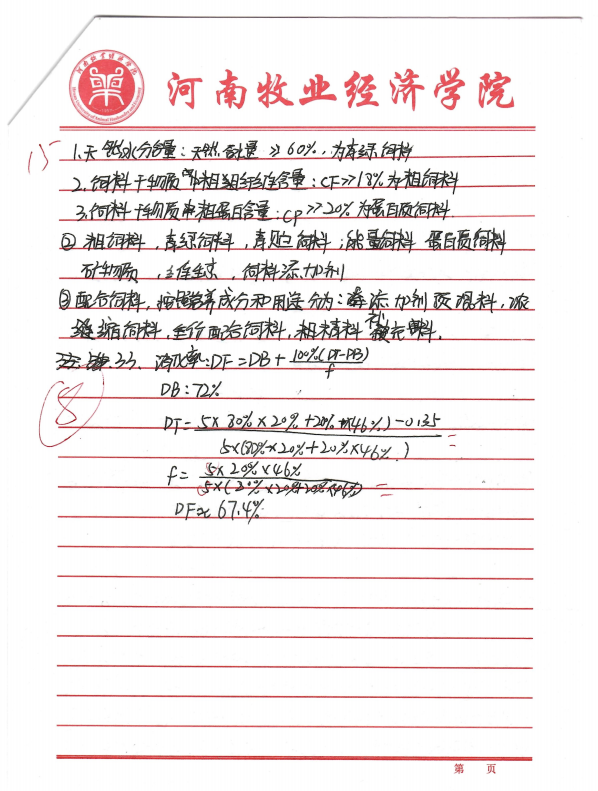 河南牧业经济学院
15 1.天然水分含量：天然含量≥60%，为青绿饲料
2.饲料干物质中粗纤维含量：CF≥18%为粗饲料
3.饲料干物质中粗蛋白含量：CP≥20%为蛋白质饲料.
② 粗饲料，青绿饲料，青贮饲料，能量饲料 蛋白质饲料
矿物质，维生素，饲料添加剂
③配合饲料，按营养成分和用途分为：添加剂预混料，浓
缩饲料，全价配合饲料，精料补充料.
33. 消化率：DF=DB+ 100%(DT-DB)/f
⑧ DB：72%
DT= 5×80%×20%+20%×46%)-0.135 / 5×(80%×20%+20%×46%) =
f= 5×20%×46% / 5×(80%×20%+20%×46%) =
DF≈67.4%
第 页